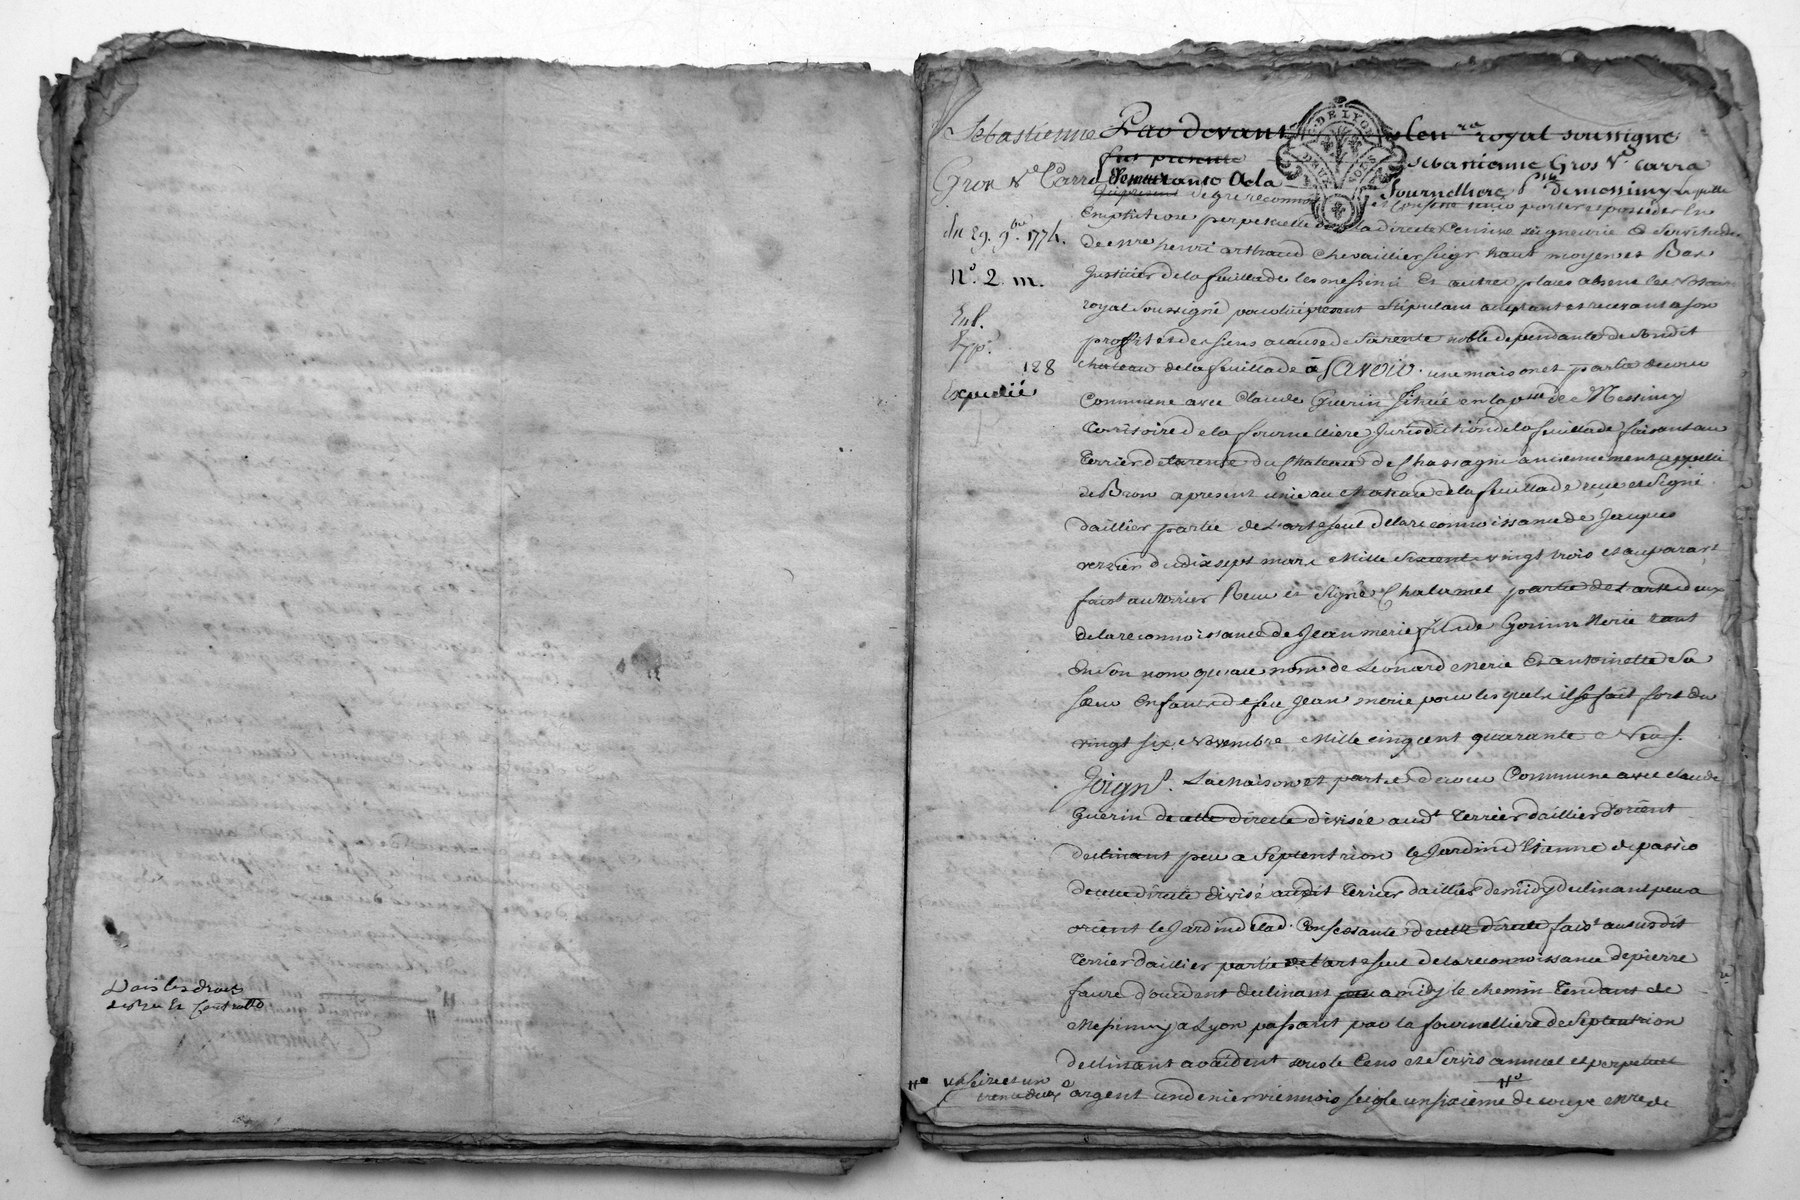 Dois les droits
de
et Controlle
Sebastienne
Gros Ve Carra
du 29. 9bre. 1774.
No. 2. m.
Enl.
Exp.
128
Expedié
DE LYON
DEUX SOLS
Par devant le no.re royal soussigné
fut presente Sebastienne Gros Ve. Carra
Demeurante A la Fournelliere Psse de messimy laquelle
de gre reconnoit et confesse tenir porter et posséder En
Emphitéose perpetuelle de la directe Censive seigneurie & Servitude
de mre henri arthaud Chevaillier seigr haut moyen et Bas
Justicier de la feuillade les messimi Et autres places absent led Notaire
royal Soussigné pour lui present Stipulant acceptant et recevant a son
proffit et des siens a cause de Sa rente noble dependante de Sondit
Chateau de la feuillade à SAVOIR. une maison et partie de cour
Commune avec Claude Guerin Située en la psse de Messimy
territoire de la fournelliere Jurisdiction de la feuillade faisant au
Terrier de la rente du Chateau de Chassagni anciennement appellé
de Bron apresent unie au chateau de la feuillade reçu et Signé
daillier partie de l'arte. seul de la reconnoissance de Jacques
verrier du dix sept mars Mille Sixcent vingt trois et auparavt
faist. au terrier Reçu et Signé Chalamel partie de l'art. deux
de la reconnoissance de Jean merie fils de Gonin Merie tant
En Son nom qu'au nom de Leonard Merie Et antoinette Sa
Sœur Enfants de feu Jean merie pour lesquels il se fait fort du
vingt six Novembre Mille cinq cent quarante Neuf.
Joignt. La Maison et partie de cour Commune avec claude
Guerin de cette directe divisée audt. Terrier daillier d'orient
declinant peu a Septentrion le Jardin d'Etienne de passio
de cette directe divisé audit terrier daillier de midy declinant peu a
orient le Jardin de lad. Confessante de cette directe faist. au susdit
terrier daillier partie de l'art. seul de la reconnoissance de pierre
faure d'occident declinant peu a midy le chemin Tendant de
Messimy a Lyon passant par la fournelliere de Septentrion
declinant a occident sous le Cens et Servis annuel et perpetuel
argent un denier viennois seigle un sixieme de coupe Mre de